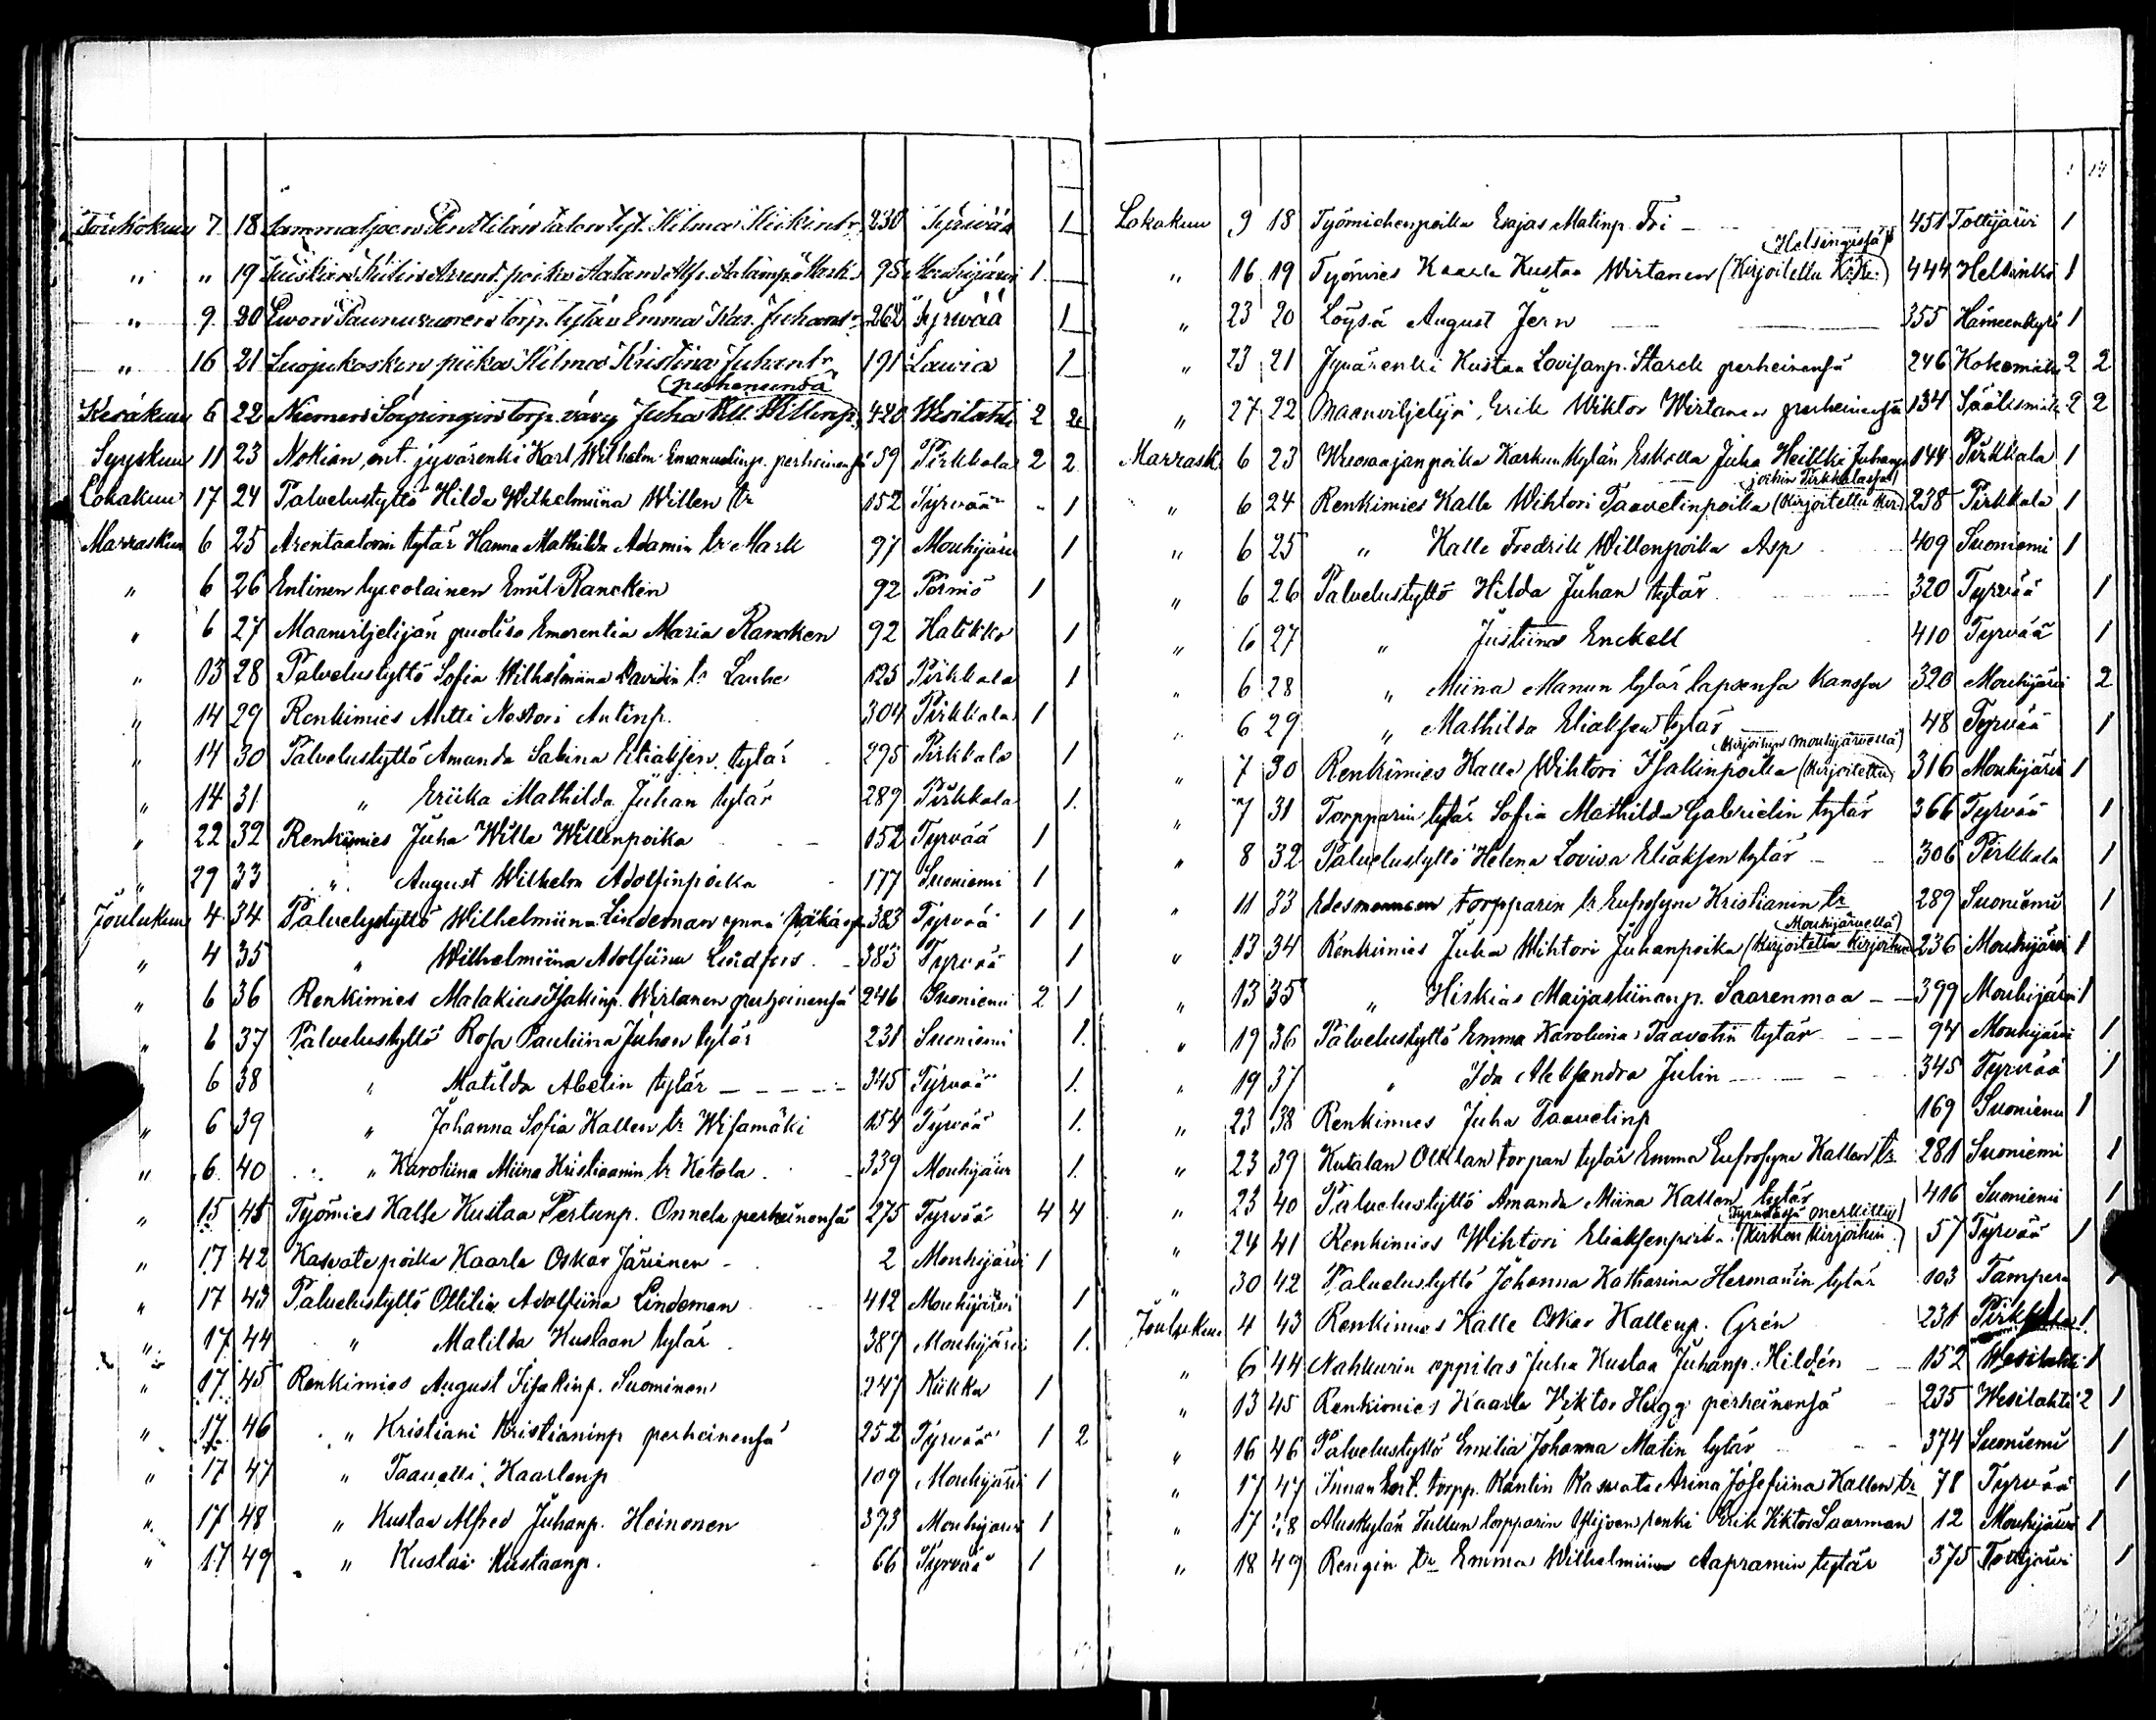 Toukokuu 7 18 Sammaljoen Talon tyt. Hilma Heikintr 230 Tyrvää 1
" " 19 Arent. poika 95 Mouhijärvi 1
" 9 20 torp. tytär Emma Kar. Juhantr 262 Tyrvää 1
" 16 21 Luojukosken piika Hilma Kristiina Juhantr 191 Lavia 1
perheinensä
Kesäkuu 6 22 Niemen torp. vävy Juha Willenp. 420 Wesilahti 2 2
Syyskuu 11 23 Nokian, ent. jyvärenki Karl Wilhelm Emanuelinp. perheinensä 59 Pirkkala 2 2
Lokakuu 17 24 Palvelustyttö Hilda Wilhelmiina Willen tr 152 Tyrvää " 1
Marraskuu 6 25 Arentaatorin tytär Hanna Mathilda Adamin tr Mark 97 Mouhijärvi 1
" 6 26 Entinen lyceolainen Emil Rancken 92 Perniö 1
" 6 27 Maanviljelijän puoliso Emerentia Maria Rancken 92 Halikko 1
" 13 28 Palvelustyttö Sofia Wilhelmiina Davidin tr Lauhe 125 Pirkkala 1
" 14 29 Renkimies Antti Nestori Antinp. 304 Pirkkala 1
" 14 30 Palvelustyttö Amanda Sabina Eliaksen tytär 295 Pirkkala 1
" 14 31 " Eriika Mathilda Juhan tytär 289 Pirkkala 1.
" 22 32 Renkimies Juha Wille Willenpoika 152 Tyrvää 1
" 29 33 " August Wilhelm Adolfinpoika 177 Suoniemi 1
Joulukuu 4 34 Palvelustyttö Wilhelmiina Lindeman 383 Tyrvää 1 1
" 4 35 " Wilhelmiina Adolfiina Lindfors 383 Tyrvää 1
" 6 36 Renkimies Malakias Isakinp. Wirtanen perheinensä 246 Suoniemi 2 1
" 6 37 Palvelustyttö Rosa Pauliina Juhan tytär 231 Suoniemi 1.
" 6 38 " Matilda Abelin tytär 345 Tyrvää 1.
" 6 39 " Johanna Sofia Kallen tr Wisamäki 154 Tyrvää 1.
" 6 40 " Karoliina Miina Kristiaanin tr Ketola 339 Mouhijärvi 1.
" 15 45 Työmies Kalle Kustaa Pertunp. Onnela perheinensä 275 Tyrvää 4 4
" 17 42 Kasvatepoika Kaarle Oskar Järvinen 2 Mouhijärvi 1
" 17 43 Palvelustyttö Ottilia Adolfiina Lindeman 412 Mouhijärvi 1
" 17 44 " Matilda Kustaan tytär 387 Mouhijärvi 1.
" 17 45 Renkimies August Isakinp. Suominen 247 Kiikka 1
" 17 46 " Kristiani Kristianinp perheinensä 252 Tyrvää 1 2
" 17 47 " Taavetti Kaarlenp 109 Mouhijärvi 1
" 17 48 " Kustaa Alfred Juhanp. Heinonen 373 Mouhijärvi 1
" 17 49 " Kustaa Kustaanp. 66 Tyrvää 1
Lokakuu 9 18 Työmiehenpoika Esajas Matinp. Fri 451 Tottijärvi 1
Helsingissä
" 16 19 Työmies Kaarle Kustaa Wirtanen (Kirjoitettu Kr.Kr.) 444 Helsinki 1
" 23 20 Löysä August Jern 355 Hämeenkyrö 1
" 23 21 Jyvärenki Kustaa Lovisanp. Starck perheinensä 246 Kokemäki 2 2
" 27 22 Maanviljelijä Erik Wiktor Wirtanen perheinensä 134 Sääksmäki 2 2
Marrask. 6 23 Wuoraajanpoika Karkunkylän Eskolla Juha Heikki Juhanp 144 Pirkkala 1
joihin Pirkkalassa)
" 6 24 Renkimies Kalle Wihtori Taavetinpoika (Kirjoitettu Kir. 238 Pirkkala 1
" 6 25 " Kalle Fredrik Willenpoika Asp 409 Suoniemi 1
" 6 26 Palvelustyttö Hilda Juhan tytär 320 Tyrvää 1
" 6 27 " Justiina Enckell 410 Tyrvää 1
" 6 28 " Miina Manun tytär lapsensa kanssa 320 Mouhijärvi 2
" 6 29 " Mathilda Eliaksen tytär 48 Tyrvää 1
Kirjoihin Mouhijärvellä)
" 7 30 Renkimies Kalle Wihtori Isakinpoika (Kirjoitettu 316 Mouhijärvi 1
" 7 31 Torpparin tytär Sofia Mathilda Gabrielin tytär 366 Tyrvää 1
" 8 32 Palvelustyttö Helena Loviva Eliaksen tytär 306 Pirkkala 1
" 11 33 torpparin tr Eufrosyne Kristianin tr 289 Suoniemi 1
Mouhijärvellä)
" 13 34 Renkimies Juha Wihtori Juhanpoika (Kirjoitettu Kirjoihin 236 Mouhijärvi 1
" 13 35 " Hiskias Maijastiinanp. Saarenmaa 399 Mouhijärvi 1
" 19 36 Palvelustyttö Emma Karoliina Taavetin tytär 94 Mouhijärvi 1
" 19 37 " Ida Aleksandra Julin 345 Tyrvää 1
" 23 38 Renkimies Juha Taavetinp 169 Suoniemi 1
" 23 39 Kutalan Ollilan torpan tytär Emma Eufrosyne Kallen tr 281 Suoniemi 1
" 23 40 Palvelustyttö Amanda Miina Kallen tytär 416 Suoniemi 1
Tyrväässä merkitty
" 24 41 Renkimies Wihtori Eliaksenpoika (Kirkon kirjoihin.) 57 Tyrvää 1
" 30 42 Palvelustyttö Johanna Katharina Hermanin tytär 103 Tampere 1
Joulukuu 4 43 Renkimies Kalle Oskar Kallenp. Grén 231 Pirkkala 1.
" 6 44 Nahkurin oppilas Juha Kustaa Juhanp. Hildén 152 Wesilahti 1
" 13 45 Renkimies Kaarle Viktor Hägg perheinensä 235 Wesilahti 2 1
" 16 46 Palvelustyttö Emilia Johanna Matin tytär 374 Suoniemi 1
" 17 47 torpp. Kasvate Josefiina Kallen tr 78 Tyrvää 1
" 17 48 Aluskylän torpparin renki Erik Viktor Saarman 12 Mouhijärvi 1
" 18 49 Rengin tr Emma Wilhelmiina Aapramin tytär 375 Tottijärvi 1